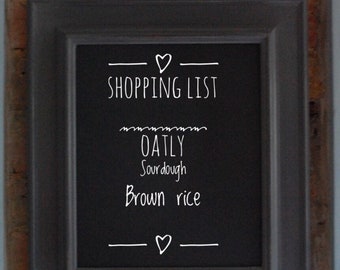 SHOPPING LIST
OATLY
Sourdough
Brown rice